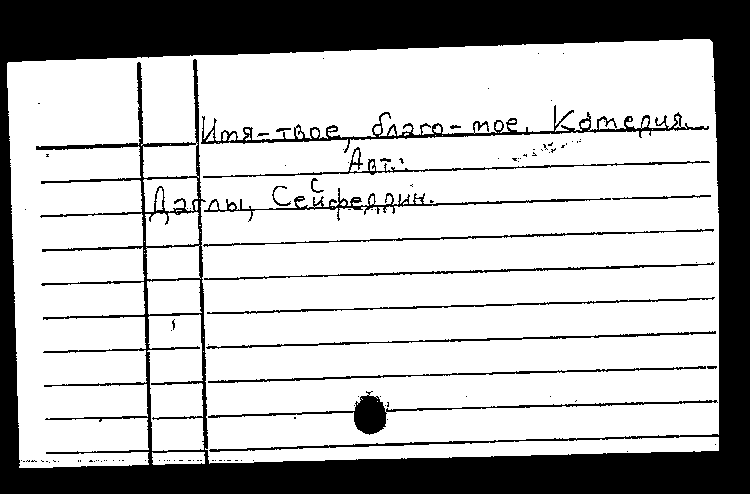 Имя-твое, благо-мое. Комедия.
Авт.:
с
Даглы, Сейфеддин.